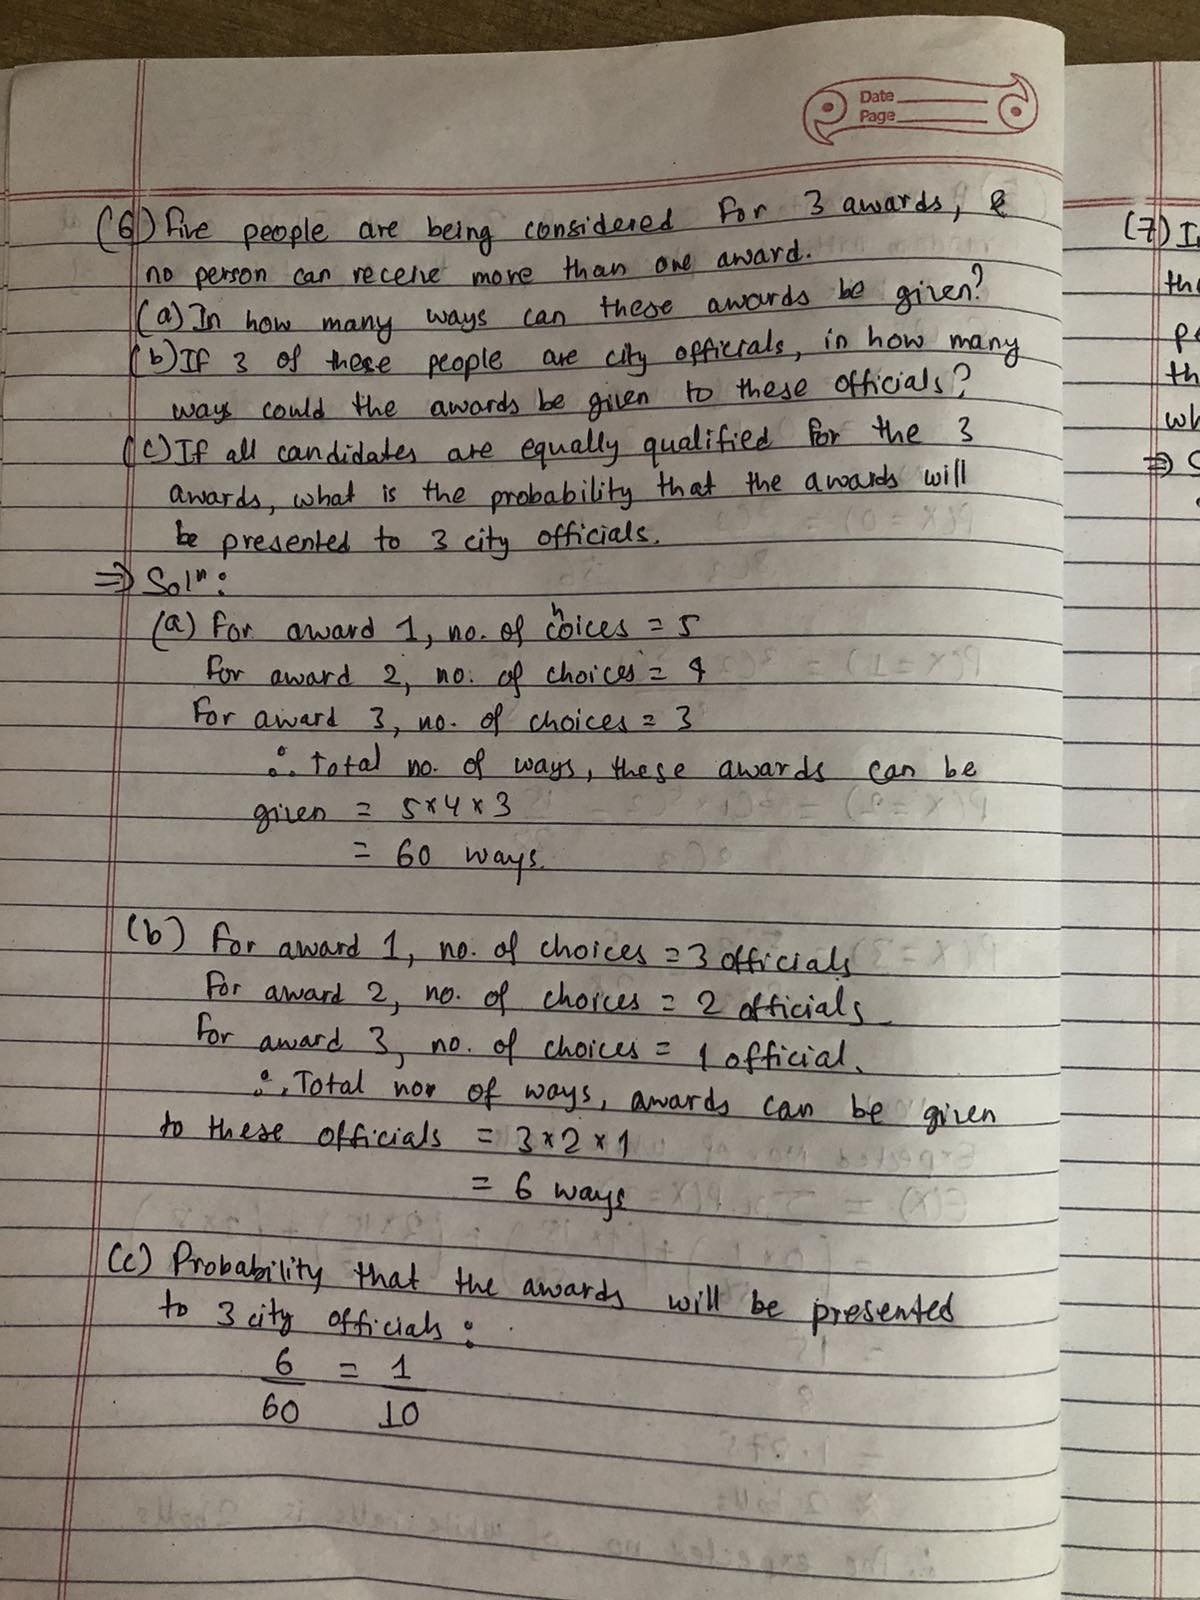 Date
Page
(6) Five people are being considered for 3 awards, &
no person can receive more than one award.
(a) In how many ways can these awards be given?
(b) If 3 of these people are city officials, in how many
ways could the awards be given to these officials?
(c) If all candidates are equally qualified for the 3
awards, what is the probability that the awards will
be presented to 3 city officials.
⇒ Solⁿ:
(a) For award 1, no. of choices = 5
For award 2, no. of choices = 4
For award 3, no. of choices = 3
∴ Total no. of ways, these awards can be
given = 5×4×3
= 60 ways.
(b) For award 1, no. of choices = 3 officials
For award 2, no. of choices = 2 officials
For award 3, no. of choices = 1 official.
∴ Total no. of ways, awards can be given
to these officials = 3×2×1
= 6 ways
(c) Probability that the awards will be presented
to 3 city officials:
6/60 = 1/10
(7)
⇒